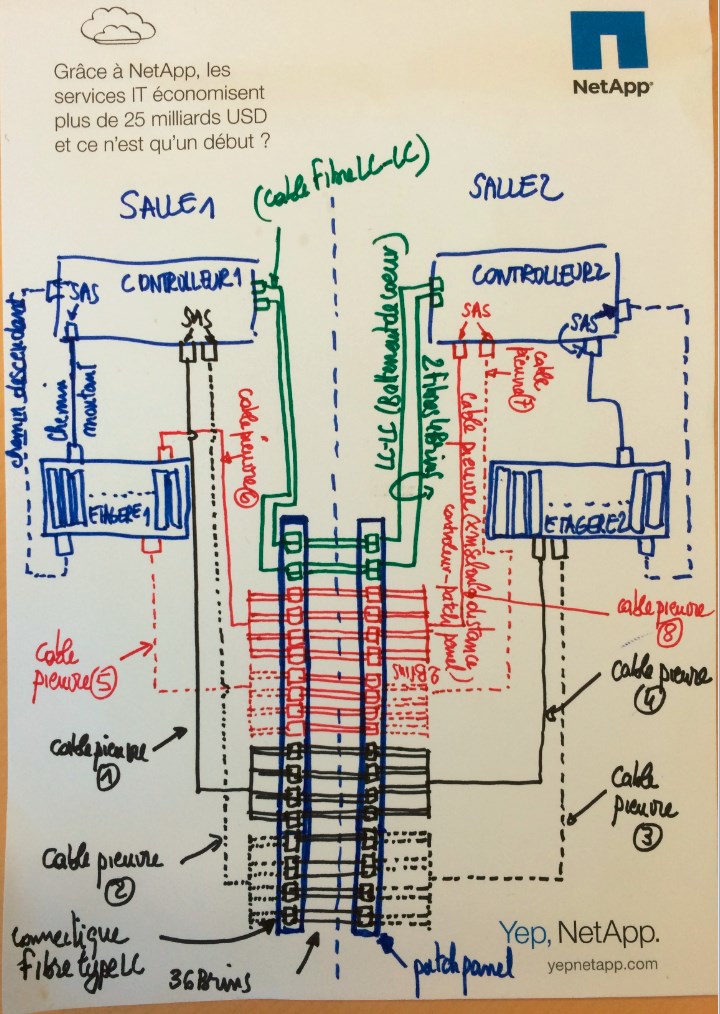 Grâce à NetApp, les
services IT économisent
plus de 25 milliards USD
et ce n'est qu'un début ?
NetApp
SALLE1
(cable Fibre LC-LC)
SALLE2
CONTROLLEUR1
CONTROLLEUR2
SAS
SAS
SAS
SAS
chemin descendant
chemin
montant
cable pieuvre 6
LC-LC (Battement de coeur)
2 fibres 4 Brins
cable
pieuvre 7
cable pieuvre (x m selon la distance
controleur-patch panel)
ETAGERE1
ETAGERE2
2 Brins
cable pieuvre
8
cable
pieuvre 5
cable pieuvre
4
cable pieuvre
1
cable
pieuvre
3
cable pieuvre
2
connectique
Fibre type LC
36 Brins
patch panel
Yep, NetApp.
yepnetapp.com